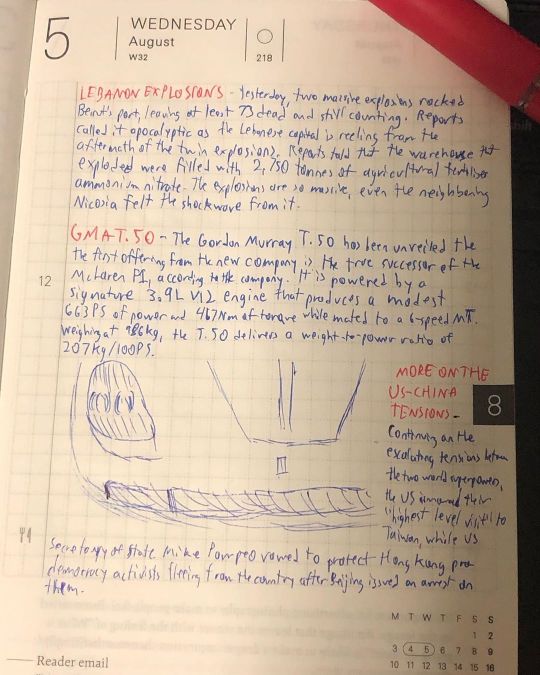 5
WEDNESDAY
August
W32
218
LEBANON EXPLOSIONS - Yesterday, two massive explosions rocked
Beirut's port, leaving at least 73 dead and still counting. Reports
called it apocalyptic as the Lebanese capital is reeling from the
aftermath of the twin explosions. Reports told that the warehouse that
exploded were filled with 2,750 tonnes of agricultural fertiliser
ammonium nitrate. The explosions are so massive, even the neighboring
Nicosia felt the shockwave from it.
GMA T.50 - The Gordon Murray T.50 has been unveiled the
the first offering from the new company is the true successor of the
McLaren P1, according to the company. It is powered by a
12
signature 3.9L V12 engine that produces a modest
663PS of power and 467Nm of torque while mated to a 6-speed MT.
Weighing at 986kg, the T.50 delivers a weight-to-power ratio of
207kg/100PS.
MORE ON THE
US-CHINA
TENSIONS -
8
Continuing on the
escalating tensions between
the two world superpowers,
the US announced their
"highest level visit" to
Taiwan, while US
Secretary of State Mike Pompeo vowed to protect Hong Kong pro
democracy activists fleeing from the country after Beijing issued an arrest on
them.
M T W T F S S
1 2
3 4 5 6 7 8 9
10 11 12 13 14 15 16
Reader email